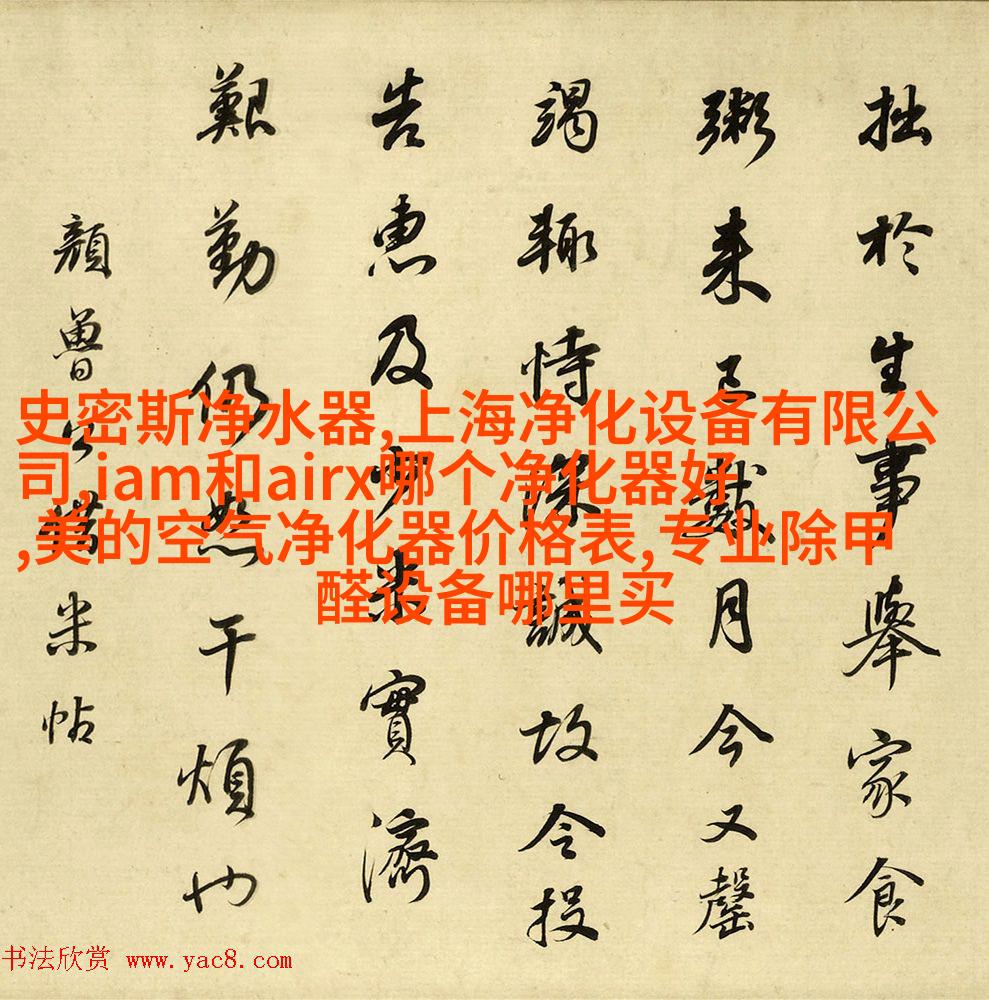 拙於生事舉家食
粥来已數月今又罄
竭輙恃深誠故令投
告惠及少米實濟
艱勤仍恕干煩也
顏魯公米帖
史密斯净水器,上海净化设备有限公
司,iam和airx哪个净化器好
,美的空气净化器价格表,专业除甲
醛设备哪里买
书法欣赏 www.yac8.com